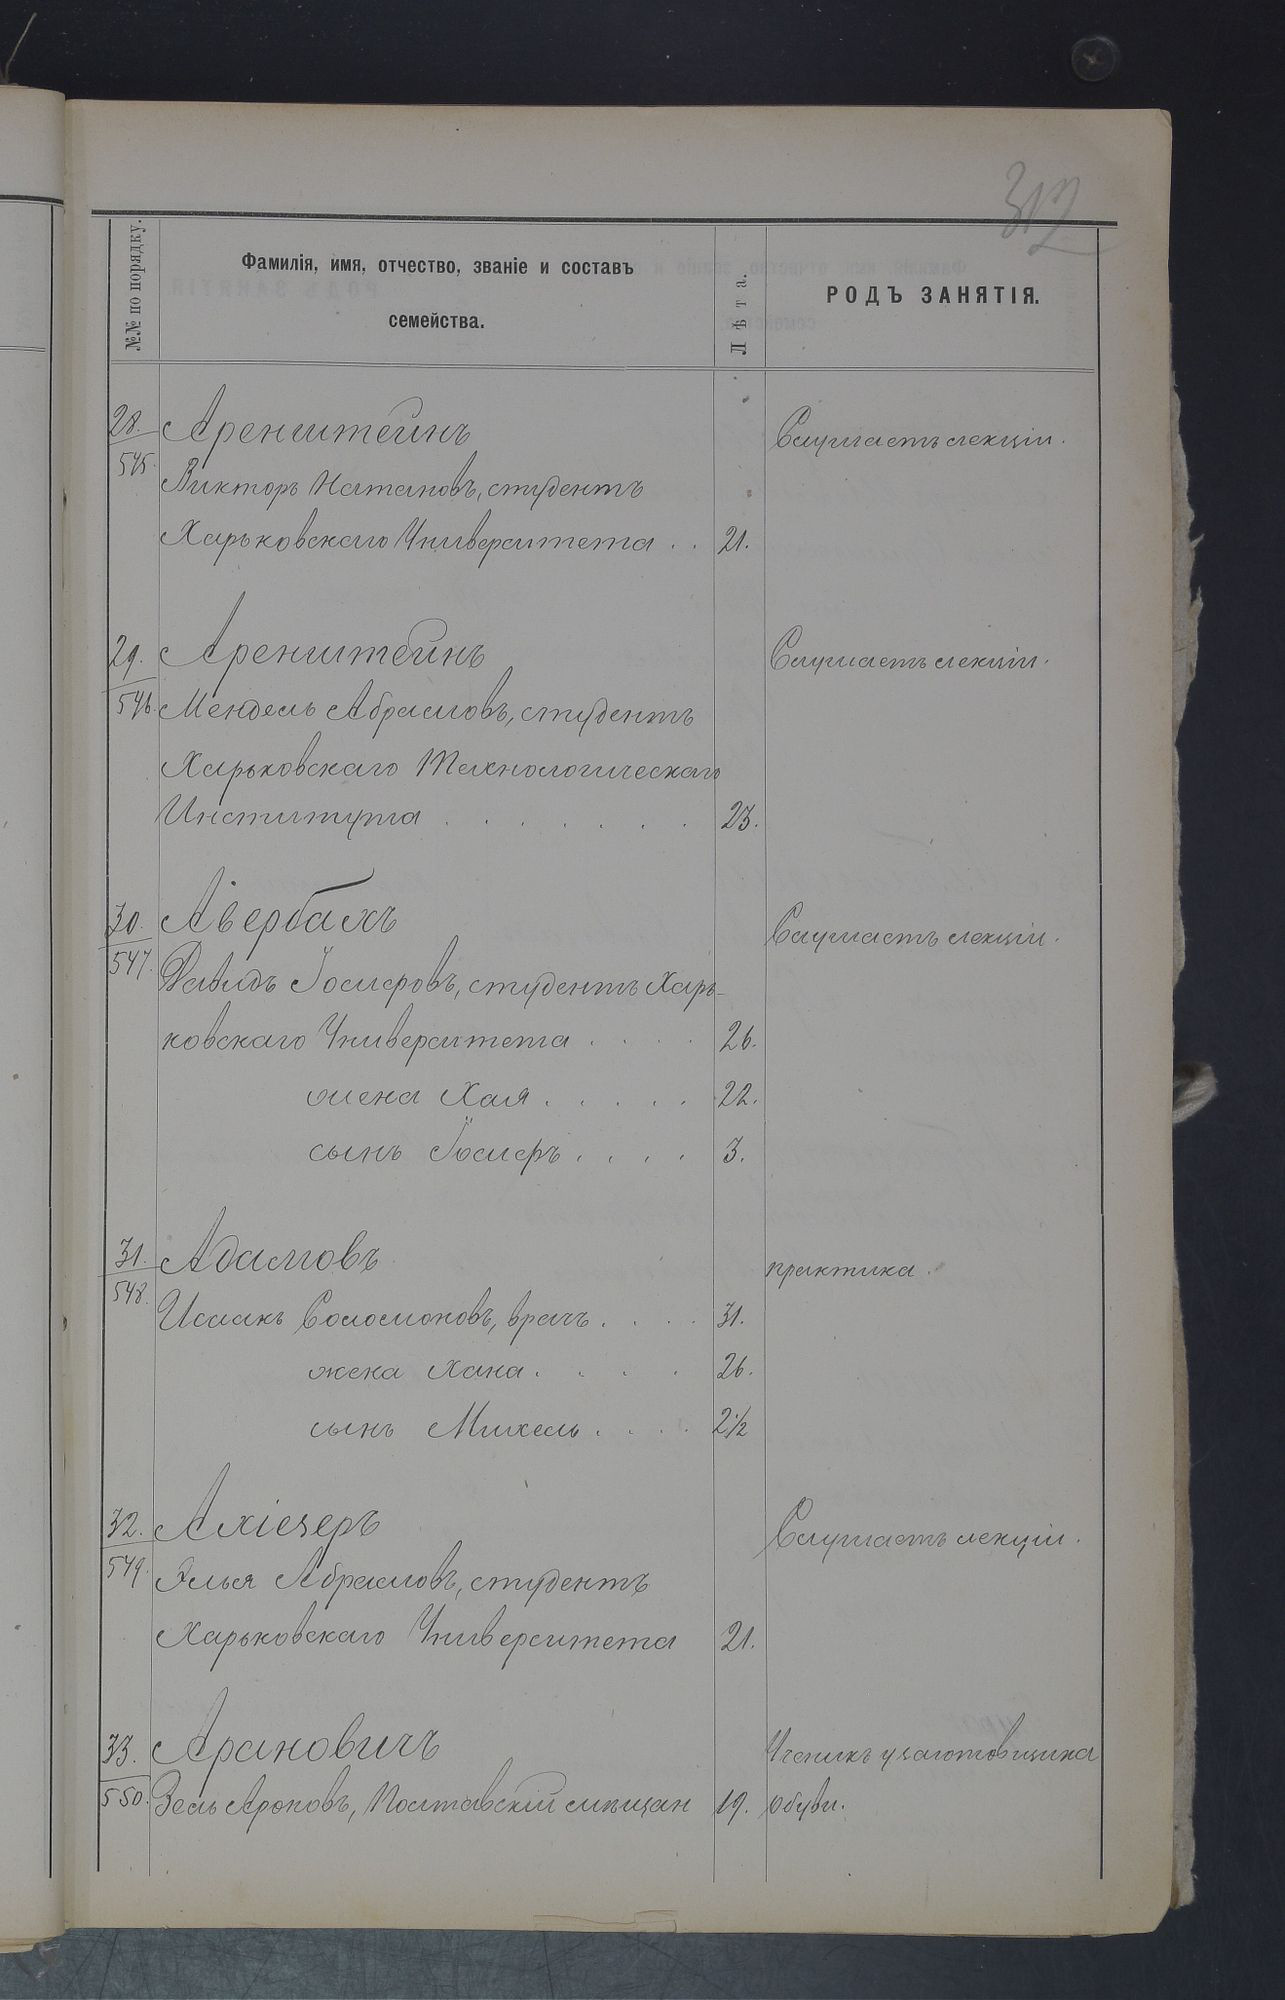 312
№№ по порядку.
Фамилія, имя, отчество, званіе и составъ
семейства.
Лѣта.
РОДЪ ЗАНЯТІЯ.
28. Аренштейнъ Слушаетъ лекціи.
545. Викторъ Натановъ, студентъ
Харьковскаго Университета . . 21.
29. Аренштейнъ Слушаетъ лекціи.
546. Мендель Абрамовъ, студентъ
Харьковскаго Технологическаго
Института . . . . . . . 23.
30. Авербахъ Слушаетъ лекціи.
547. Давидъ Іосифовъ, студентъ Харь-
ковскаго Университета . . . . 26.
жена Хая . . . . . 22.
сынъ Іосифъ . . . . 3.
31. Адамовъ практика.
548. Исаакъ Соломоновъ, врачъ . . . . 31.
жена Хана . . . . . 26.
сынъ Михель . . . . 2 1/2
32. Ахіезеръ Слушаетъ лекціи.
549. Элья Абрамовъ, студентъ
Харьковскаго Университета 21.
33. Арановичъ Ученикъ у заготовщика
550. Зель Ароновъ, Полтавскій мѣщан 19. обуви.